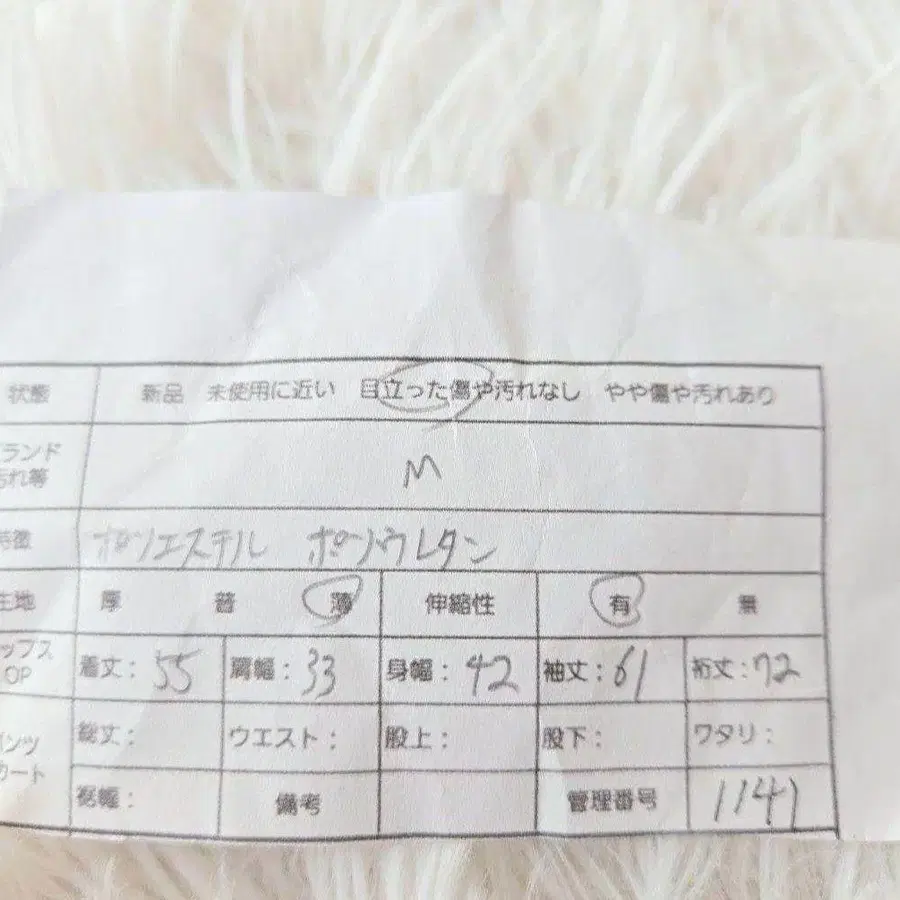 状態 新品 未使用に近い 目立った傷や汚れなし やや傷や汚れあり
ランド
汚れ等 M
特徴 ポリエステル ポリウレタン
生地 厚 普 薄 伸縮性 有 無
ップス
OP 着丈: 55 肩幅: 33 身幅: 42 袖丈: 61 裄丈: 72
ンツ
カート 総丈: ウエスト: 股上: 股下: ワタリ:
裾幅: 備考 管理番号 1141